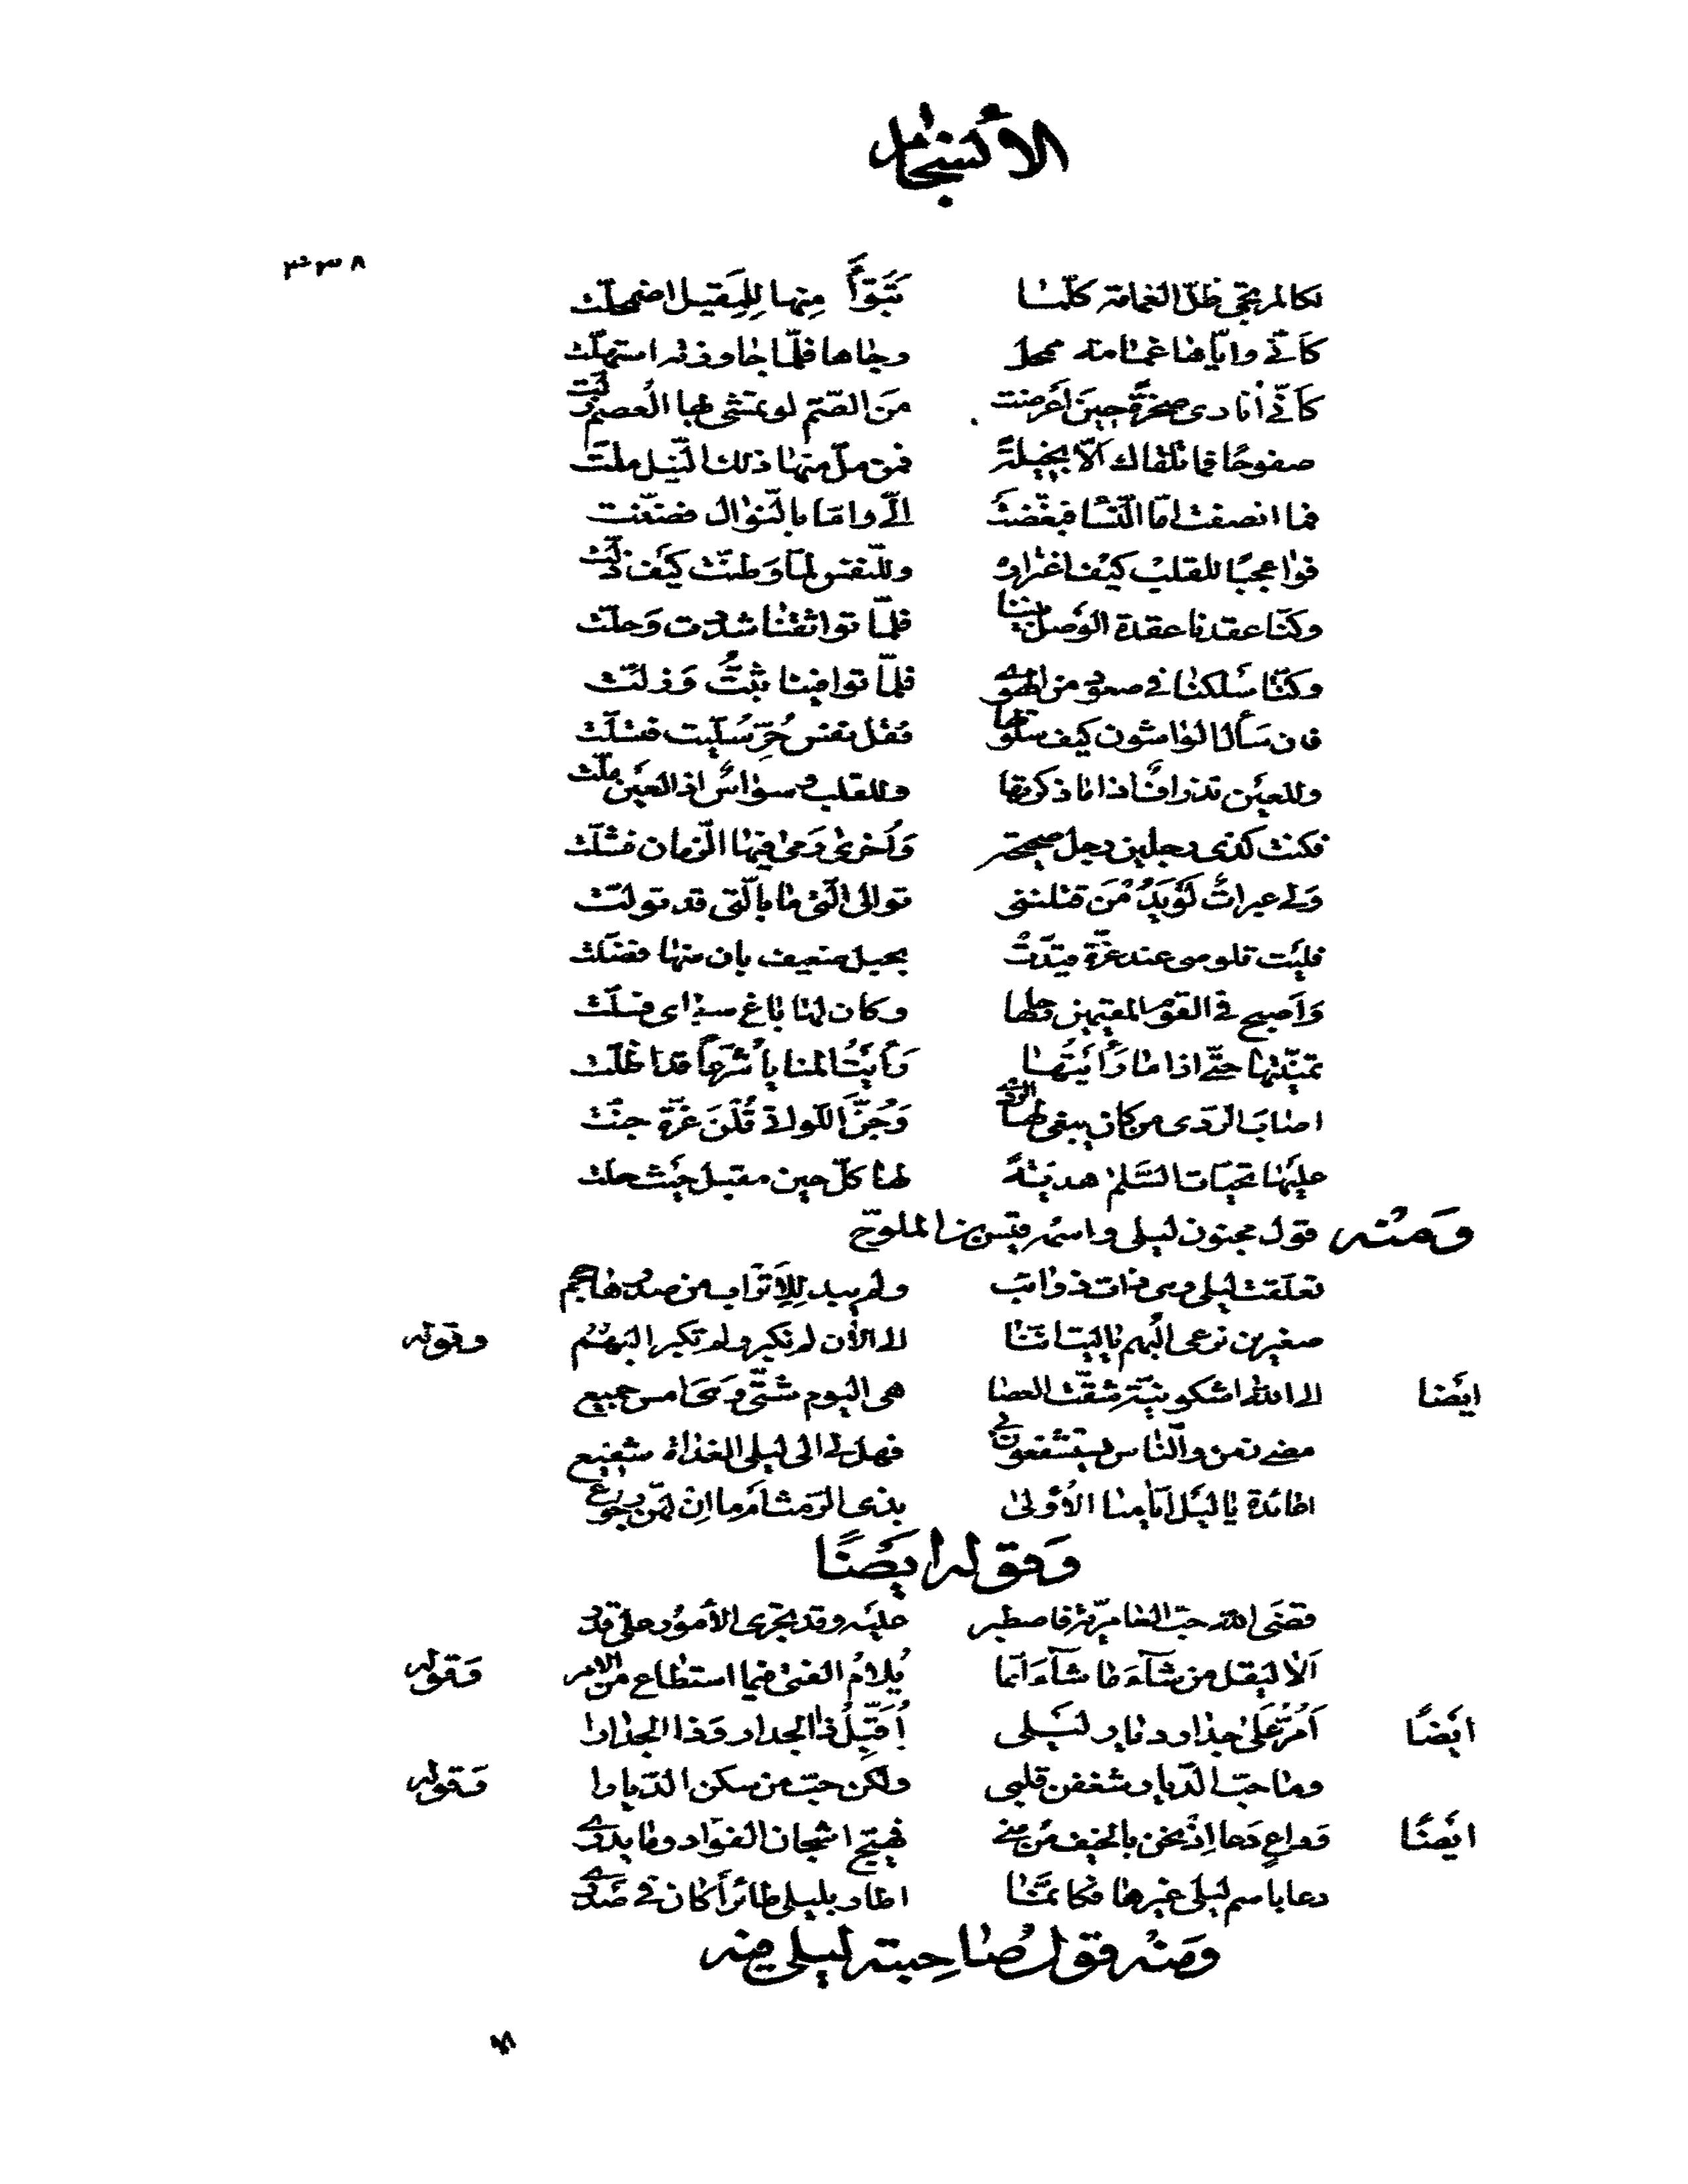 الأنسجام
٣٣٨
لكالمرتجى ظلّ الغمامة كلّما تَبَوَّأَ مِنها لِلمَقيل اضمحلّت
كأنّى وايّاها غمامة ممحل رجاها فلمّا جاوزته استهلّت
كأنّى أنادى صخرةً حينَ أعرضت منَ الصّم لو تمشى بها الُعصم زلّت
صفوحًا فما تلقاك الّا بخيلةً فمن ملّ منها ذلك النّيل ملّت
فما انصفت امّا النّسا فبغّضت الىّ وامّا بالنّوال فضنّت
فوا عجبًا للقلب كيْف اغتراره وللنّفس لمّا وَطنّت كيَف ذلّت
وكنّا عقدنا عقدة الوَصل بيننا فلمّا تواثقنا شددت وَحلّت
وكنّا سَلكنا فى صعود من الهوى فلمّا توافينا ثبتُّ وَزلّت
فان سَأل الواشون كيف سلوتها فقل نفس حُرّ سُلّيت فتسلّت
وللعيَن تذراف اذا ما ذكرتها وللقلب وسواس اذا العيَن ملّت
فكنت كذى رجلين رجل صحيحة وَأخرى رَمى فيها الزّمان فشلّت
وَلى عبرات لَوْ يَدُمْنَ قتلننى توالى الّتى ما بالّتى قد تولّت
فليَت قلوصى عند عزّة قيّدت بحبل ضعيف بان منها فضلّت
وَاَصبح فى القوم المقيمين رحلها وكان لها باغ سواى فبلّت
تمنّيتها حتّى اذا ما رَأيَتُها رَأيَتُ المنايا شُرّعاً قد اظلّت
اصابَ الرّدى من كان يبغى لها الردى وَجُنَّ اللّواتى قُلْنَ عَزّة جنّت
عليَها تحيّات السَّلام هديّةً لها كلّ حين مقبل حيَث حلّت
وَمنْه قول مجنون ليلى واسمه قيَس بن الملوّح
تعلّقت ليلى وهى ذات ذوائب ولم يبد لِلأَتْراب من صدرها حجم
صغيرين نرعى البُهم ياليت انّنا الى الأن لم نكبر ولم تكبر البَهْمُ وقوله
ايَضا الى الله اشكو نيّة شقّت العصا هى اليوم شتّى وَهى امس جميع
مضى زمن والنّاس يستشفعون بى فهل لى الى ليلى الغداة شفيع
اعائدة يا ليَل ايّامنا الأولى بذى الرّمث ام ما ان لهنّ رجوع
وَقوله ايَضًا
قضَى الله حبّ العامريّة فاصطبر عليَه وقد تجرى الأمُور على قدر
اَلا ليَقل من شآءَ ما شآءَ انّما يُلامُ الفتى فيما استطاع من الامر وَقوله
ايَضًا اَمُرّ عَلى جدار ديار ليَلى أُقَبّلُ ذا الجدار وَذا الجدارا
وما حبّ الدّيار شغفن قلبى ولكن حبّ من سكن الدّيارا وَقوله
ايَضًا وَداعٍ دَعا إذْ نحن بالخيف مِن منى فهيّج اشجان الفؤاد وما يدرى
دعا باسم ليَلى غيرها فكانّما اطار بليلى طائراً كان فى صَدرى
ومَنْه قول صَاحِبته ليلى فيه